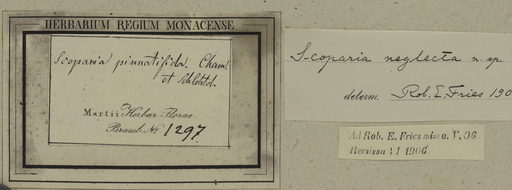 HERBARIUM REGIUM MONACENSE
Scoparia pinnatifida. Cham.
et Schlchtd.
Martii Herbar. Florae
Brasil. No 1297.
Scoparia neglecta n. sp
determ. Rob. E. Fries 190
Ad Rob. E. Fries missa. V, 06.
Revissa VI 1906.